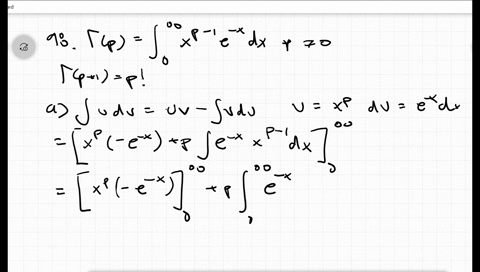 98. Γ(p) = ∫₀^∞ x^{p-1} e^{-x} dx p > 0
Γ(p+1) = p!
a) ∫ u dv = uv - ∫ v du u = x^p dv = e^{-x} dx
= [x^p (-e^{-x}) + p ∫ e^{-x} x^{p-1} dx]₀^∞
= [x^p (-e^{-x})]₀^∞ + p ∫₀^∞ e^{-x}